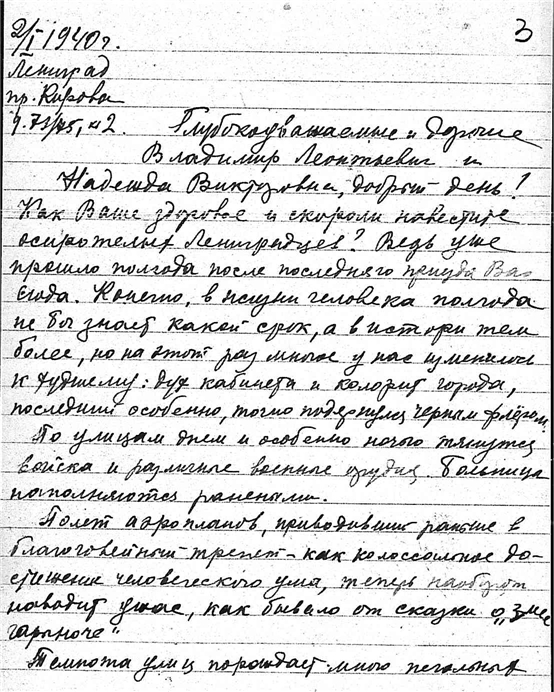 3
2/I-1940г.
Ленинград
пр. Кирова
д. 73/75, 2.
Глубокоуважаемые и дорогие
Владимир Леонтьевич и
Надежда Викторовна, добрый день!
Как Ваше здоровье и скоро ли навестите
осиротелых Ленинградцев? Ведь уже
прошло полгода после последнего приезда Вас
сюда. Конечно, в жизни человека полгода
не Бог знает какой срок, а в истории тем
более, но на этот раз многое у нас изменилось
к худшему: дух кабинета и колорит города,
последний особенно, точно подернулся черным флёром
По улицам днем и особенно ночью тянутся
войска и различные военные орудия. Больницы
наполняются ранеными.
Полет аэропланов, приводивший раньше в
благоговейный трепет - как колоссальное до-
стижение человеческого ума, теперь наоборот
наводит ужас, как бывало от сказки о „Змее
горыноче"
Темнота улиц порождает много печальных